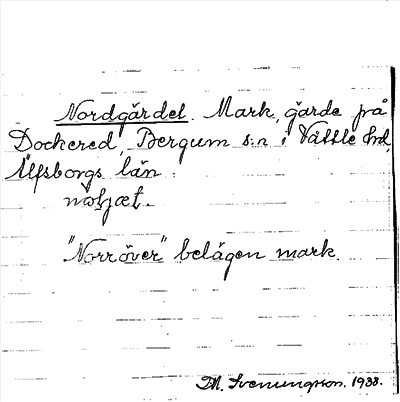 Nordgärdet. Mark, gärde på
Dockered, Bergum s:n i Vättle hd,
Älfsborgs län.
"Norröver" belägen mark.
Th. Svenungsson. 1938.